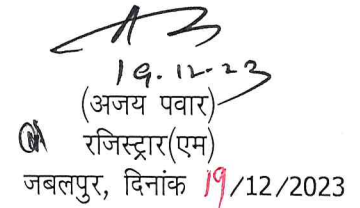 19.12.23
(अजय पवार)
रजिस्ट्रार(एम)
जबलपुर, दिनांक 19/12/2023